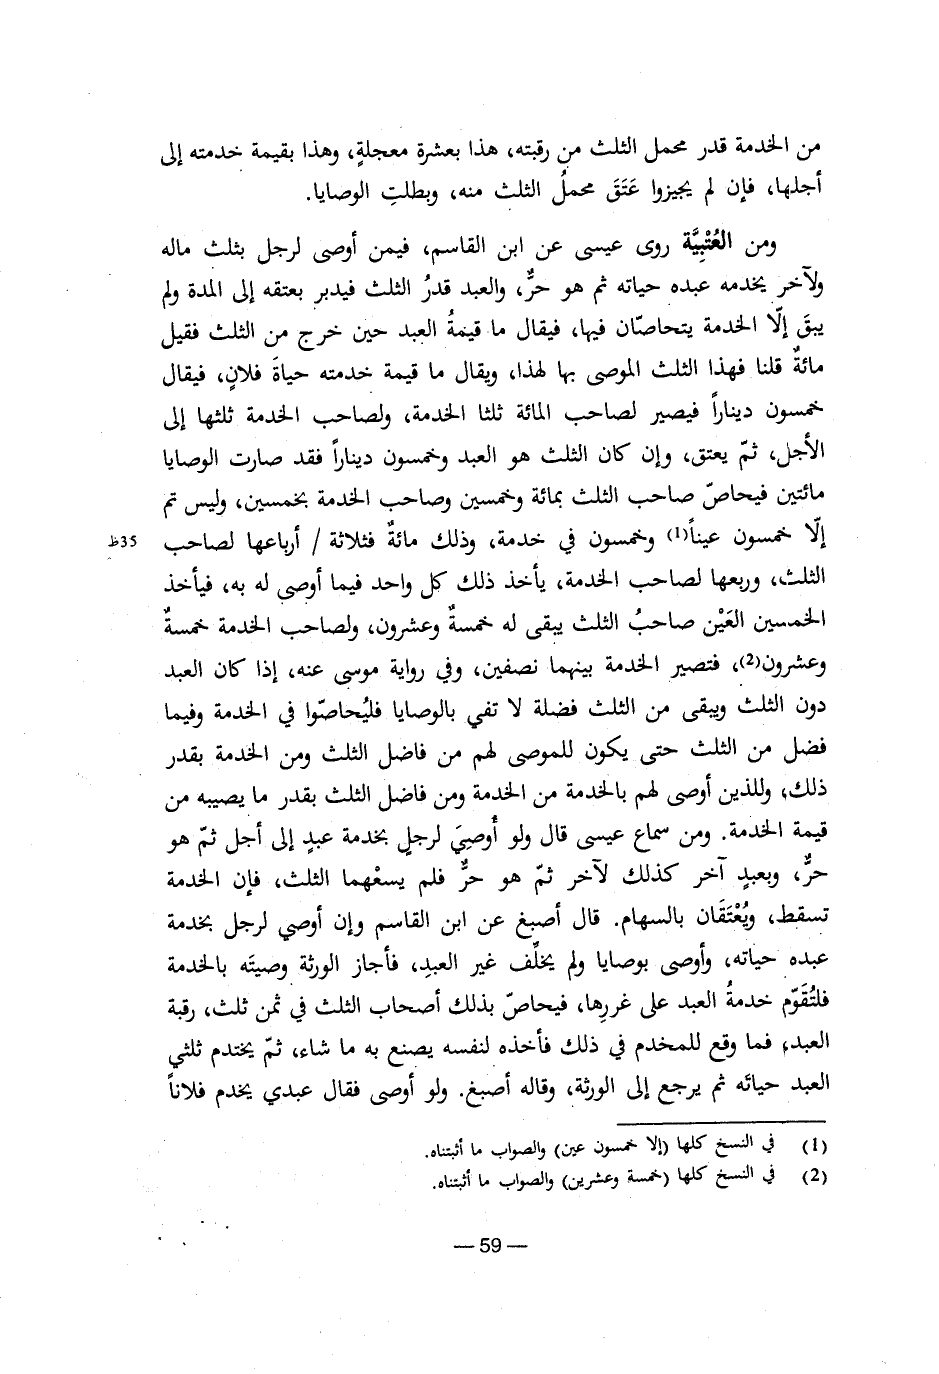 من الخدمة قدر محمل الثلث من رقبته، هذا بعشرة معجلةٍ، وهذا بقيمة خدمته إلى
أجلها، فإن لم يجيزوا عَتَقَ محملُ الثلث منه، وبطلتِ الوصايا.
ومن العُتْبِيَّة روى عيسى عن ابن القاسم، فيمن أوصى لرجل بثلث ماله
ولآخر يخدمه عبده حياته ثم هو حرٌّ، والعبد قدرُ الثلث فيدبر بعتقه إلى المدة ولم
يبقَ إلّا الخدمة يتحاصّان فيها، فيقال ما قيمةُ العبد حين خرج من الثلث فقيل
مائةٌ قلنا فهذا الثلث الموصى بها لهذا، ويقال ما قيمة خدمته حياةَ فلانٍ، فيقال
خمسون ديناراً فيصير لصاحب المائة ثلثا الخدمة، ولصاحب الخدمة ثلثها إلى
الأجل، ثمّ يعتق، وإن كان الثلث هو العبد وخمسون ديناراً فقد صارت الوصايا
مائتين فيحاصّ صاحب الثلث بمائة وخمسين وصاحب الخدمة بخمسين، وليس تم
إلّا خمسون عيناً(1) وخمسون في خدمة، وذلك مائةٌ فثلاثة / أرباعها لصاحب 35ظ
الثلث، وربعها لصاحب الخدمة، يأخذ ذلك كل واحد فيما أوصى له به، فيأخذ
الخمسين العَيْن صاحبُ الثلث يبقى له خمسةٌ وعشرون، ولصاحب الخدمة خمسةٌ
وعشرون(2)، فتصير الخدمة بينهما نصفين، وفي رواية موسى عنه، إذا كان العبد
دون الثلث ويبقى من الثلث فضلة لا تفي بالوصايا فليُحاصّوا في الخدمة وفيما
فضل من الثلث حتى يكون للموصى لهم من فاضل الثلث ومن الخدمة بقدر
ذلك، وللذين أوصى لهم بالخدمة من الخدمة ومن فاضل الثلث بقدر ما يصيبه من
قيمة الخدمة. ومن سماع عيسى قال ولو أُوصِيَ لرجلٍ بخدمة عبدٍ إلى أجل ثمّ هو
حرٌّ، وبعبدٍ آخر كذلك لآخر ثمّ هو حرٌّ فلم يسعْهما الثلث، فإن الخدمة
تسقط، ويُعْتَقَان بالسهام. قال أصبغ عن ابن القاسم وإن أوصي لرجل بخدمة
عبده حياته، وأوصى بوصايا ولم يخلِّف غير العبدِ، فأجاز الورثة وصيتَه بالخدمة
فلتُقَوّم خدمةُ العبد على غررِها، فيحاصّ بذلك أصحاب الثلث في ثمن ثلث، رقبة
العبدِ، فما وقع للمخدم في ذلك فأخذه لنفسه يصنع به ما شاء، ثمّ يختدم ثلثي
العبد حياتَه ثم يرجع إلى الورثة، وقاله أصبغ. ولو أوصى فقال عبدي يخدم فلاناً
(1) في النسخ كلها (إلا خمسون عين) والصواب ما أثبتناه.
(2) في النسخ كلها (خمسة وعشرين) والصواب ما أثبتناه.
— 59 —